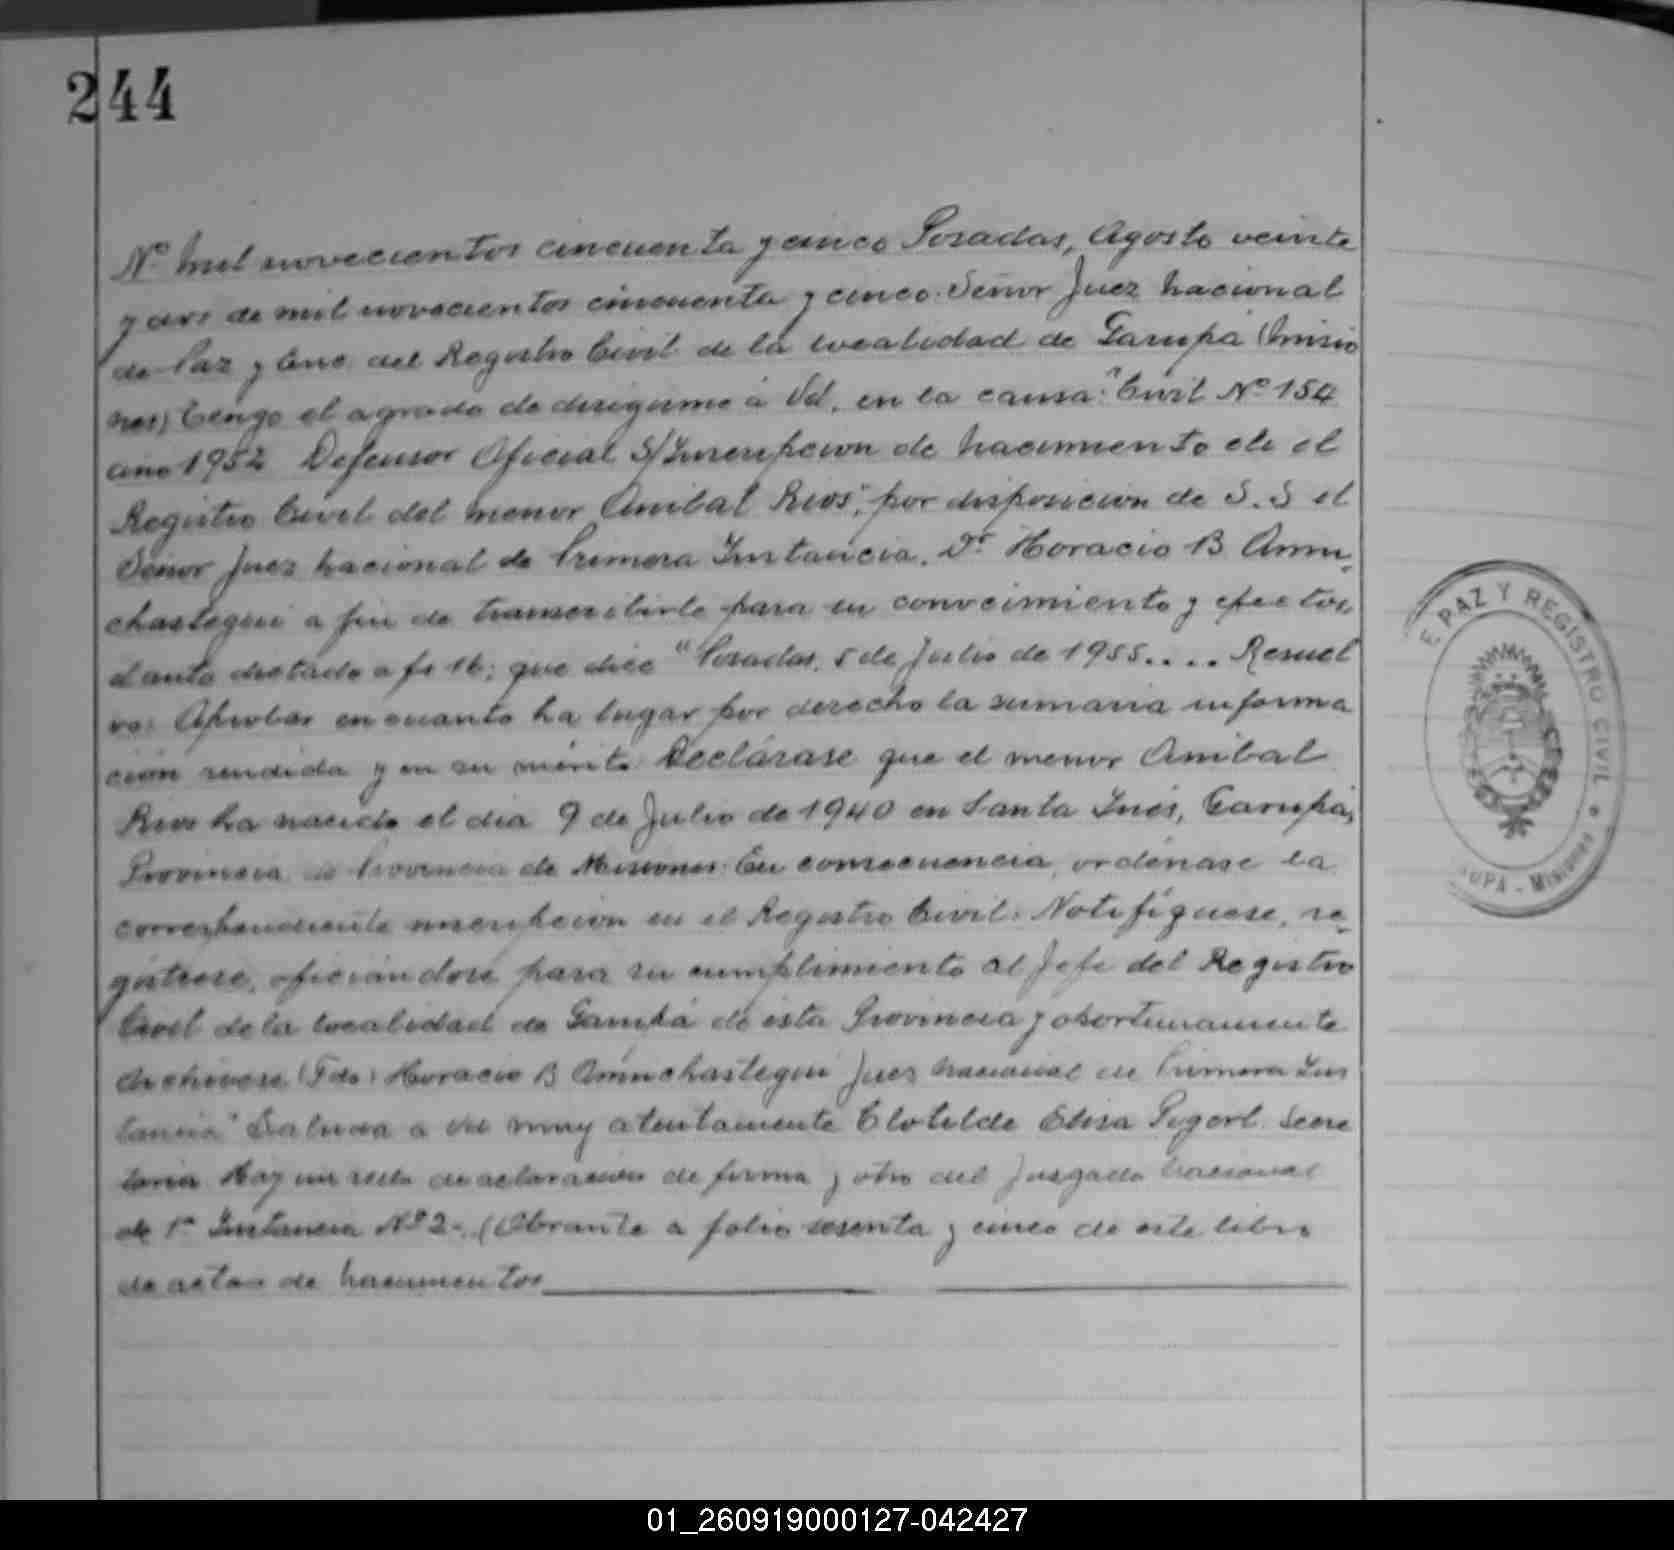 244
Nº mil novecientos cincuenta y cinco Posadas, Agosto veinte
y dos de mil novecientos cincuenta y cinco. Señor Juez nacional
de Paz y Enc. del Registro Civil de la localidad de Garupá (Misio
nes) Tengo el agrado de dirigirme á Vd. en la causa: "Civil Nº 154
año 1952 Defensor Oficial S/Inscripcion de nacimiento en el
Registro Civil del menor Anibal Rios", por disposicion de S. S el
Señor Juez nacional de Primera Instancia. Dr. Horacio B Amu-
chastegui a fin de transcribirle para su conocimiento y efectos,
el auto dictado a fs 16; que dice "Posadas, 5 de Julio de 1955.... Resuel
vo: Aprobar en cuanto ha lugar por derecho la sumaria informa
ción rendida y en su mérito Declárase que el menor Anibal
Rios ha nacido el dia 9 de Julio de 1940 en Santa Inés, Garupá,
Provincia de Provincia de Misiones. En consecuencia, ordénase la
correspondiente inscripción en el Registro Civil. Notifíquese, re-
gístrese, oficiándose para su cumplimiento al Jefe del Registro
Civil de la localidad de Garupá de esta Provincia y oportunamente
Archivese (Fdo) Horacio B Amuchastegui Juez nacional de Primera Ins
tancia" Saluda a Vd muy atentamente Clotilde Elisa Secre
taria Hay un sello de aclaración de firma y otro del Juzgado Nacional
de 1ª Instancia Nº 2-. (Obrante a folio sesenta y cinco de este libro
de actas de nacimientos
E PAZ Y REGISTRO CIVIL
RUPÁ - Misiones
01_260919000127-042427